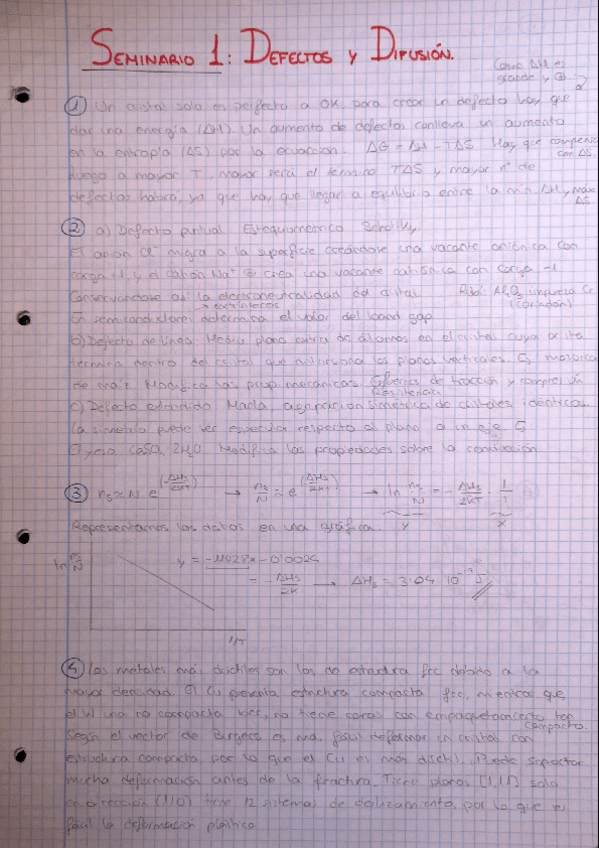 SEMINARIO 1: DEFECTOS Y DIFUSIÓN.
Como ΔH es
grande y ⊕
① Un cristal solo es perfecto a 0K, para crear un defecto hay que
dar una energía (ΔH). Un aumento de defectos conlleva un aumento
en la entropía (ΔS) por la ecuación. ΔG = ΔH - TΔS Hay que compensar
con ΔS
luego a mayor T, mayor será el término TΔS y mayor nº de
defectos habrá, ya que hay que llegar a equilibrio entre la mín ΔH y máx
ΔS
② a) Defecto puntual Estequiométrico Schottky
El anión Cl⁻ migra a la superficie creándose una vacante aniónica con
carga +1, y el catión Na⁺ crea una vacante catiónica con carga -1
Conservándose así la electroneutralidad del cristal. Rubí: Al₂O₃ impureza Cr
extrínsecos (corindón)
En semiconductores determina el valor del band gap
b) Defecto de línea. Medio plano extra de átomos en el cristal cuya
termina dentro del cristal que los planos verticales. Es
de Modifica las prop. mecánicas. Esfuerzos de tracción y compresión
Resistencia
c) Defecto extendido Macla, agrupación simétrica de cristales idénticos.
La simetría puede ser especular respecto al plano o un eje.
CaSO₄·2H₂O. Modifica las propiedades sobre la conducción
③ ns ≈ N · e^(-ΔHs/2KT) → ns/N ≈ e^(-ΔHs/2KT) → ln ns/N = - ΔHs/2KT · 1/T
y x
Representamos los datos en una gráfica.
ln ns/N
y = -11028x - 0'0024
= -ΔHs/2K → ΔHs = 3'04 · 10⁻¹⁹ J
1/T
④ Los metales más dúctiles son los de estructura fcc debido a la
mayor densidad. El Cu presenta estructura compacta fcc, mientras que
el W una no compacta bcc, no tiene caras con empaquetamiento tan
compacto.
Según el vector de Burgers es más fácil deformar un cristal con
estructura compacta por lo que el Cu es más dúctil. Puede soportar
mucha deformación antes de la fractura. Tiene planos (1,1,1) solo
en dirección (110) tiene 12 sistemas de deslizamiento, por lo que es
fácil la deformación plástica